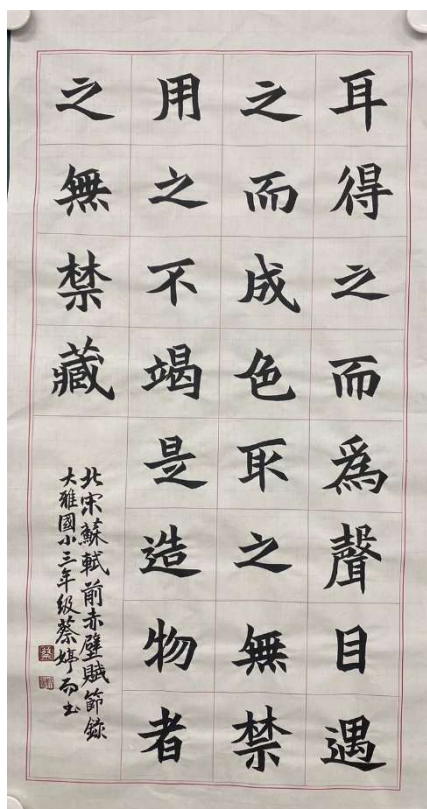 耳得之而為聲目遇
之而成色取之無禁
用之不竭是造物者
之無禁藏
北宋蘇軾前赤壁賦節錄
大雅國小三年级蔡婷而书